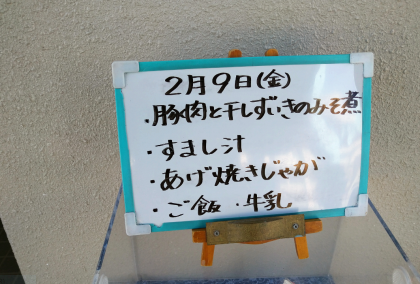 2月9日(金)
・豚肉と干しずいきのみそ煮
・すまし汁
・あげ焼きじゃが
・ご飯 ・牛乳